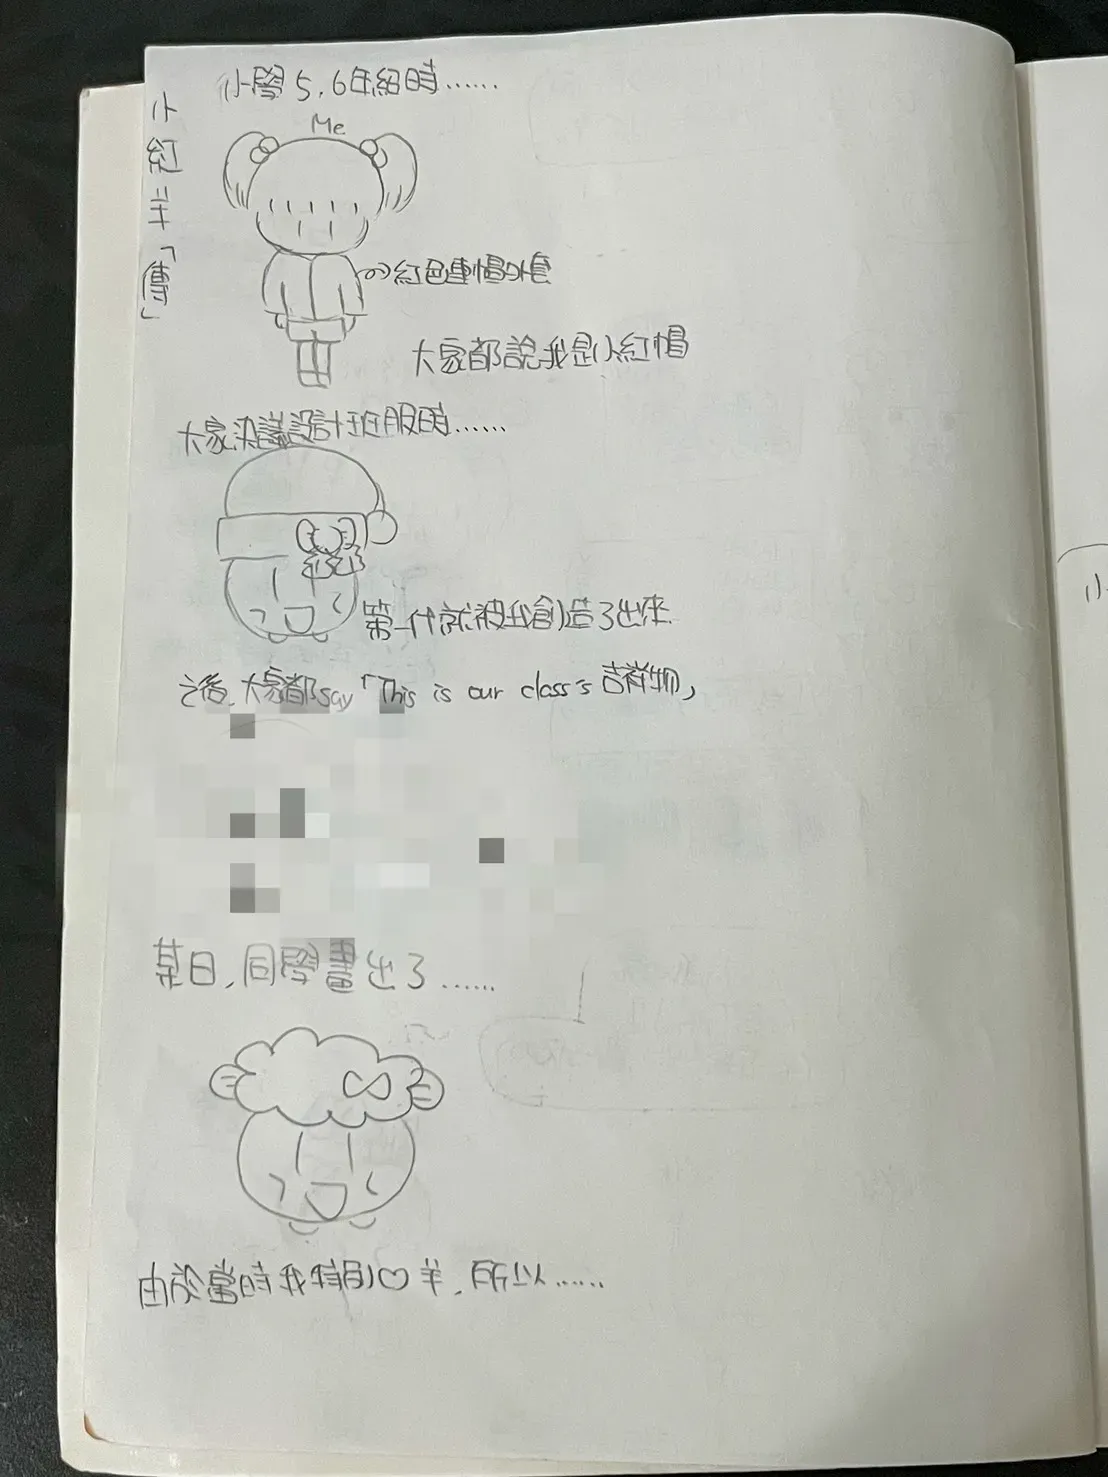 小紅羊「傳」
小學5,6年級時……
Me
紅色連帽外套
大家都說我是小紅帽
大家決議設計班服時……
第一代就被我創造了出來
之後,大家都say「This is our class's吉祥物」
某日,同學畫出了……
由於當時我特別♡羊,所以……
小